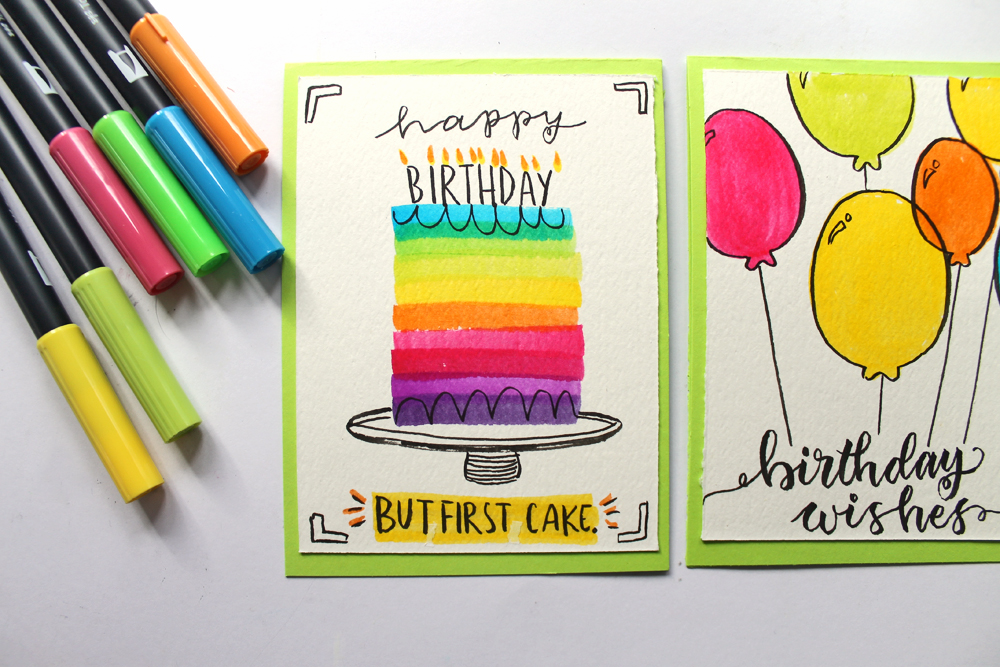 happy
BIRTHDAY
BUT FIRST CAKE.
birthday
wishes